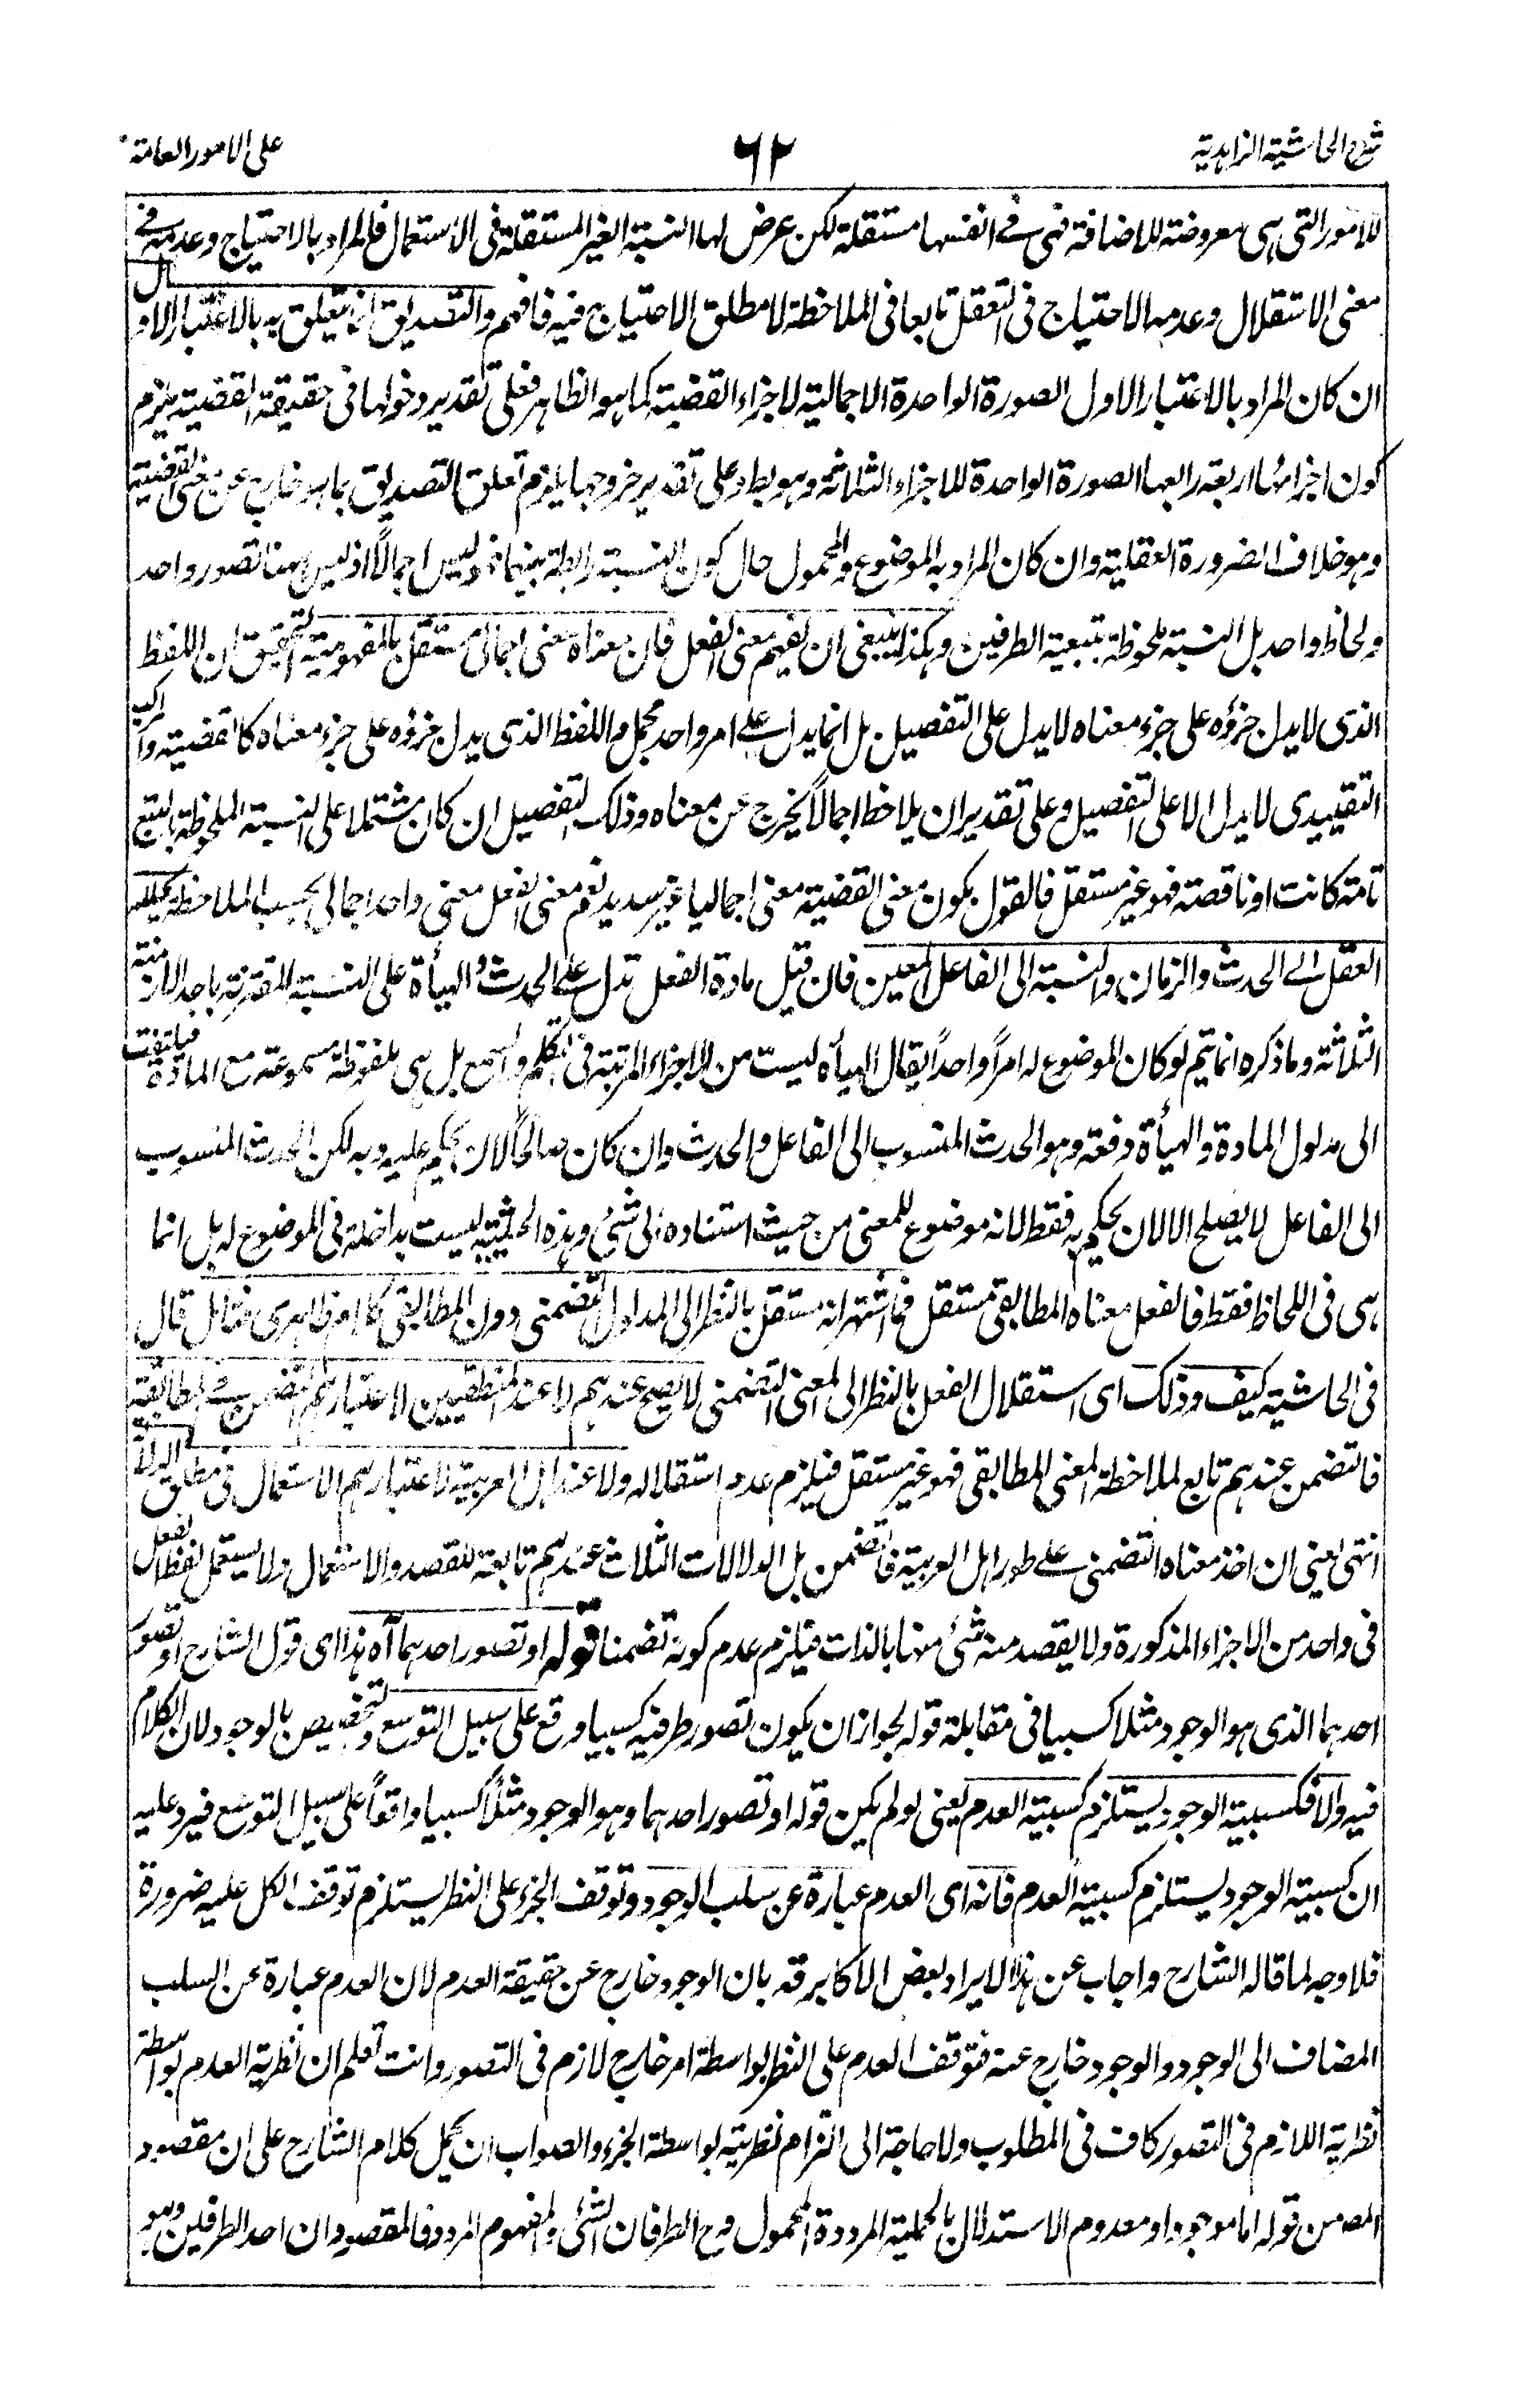 شرح الحاشية الزاهدية
٦٢
على الامور العامة
للامور التى هى معروضة للاضافة فهى فى انفسها مستقلة لكن عرض لها النسبة الغير المستقلة فى الاستعمال فالمراد بالاحتياج وعدمه فى
معنى الاستقلال وعدمه الاحتياج فى التعقل تابعا فى الملاحظة لا مطلق الاحتياج فيه فافهم والتصديق انما يتعلق به بالاعتبار الاول
ان كان المراد بالاعتبار الاول الصورة الواحدة الاجمالية لاجزاء القضية كما هو الظاهر فعلى تقدير دخولها فى حقيقة القضية يلزم
كون اجزائها اربعة رابعها الصورة الواحدة للاجزاء الثلاثة وهو بط وعلى تقدير خروجها يلزم تعلق التصديق بما هو خارج عن معنى القضية
وهو خلاف الضرورة العقلية وان كان المراد به الموضوع والمحمول حال كون النسبة رابطة بينهما فهو ليس اجمالاً اذ ليس ههنا تصور واحد
ولحاظ واحد بل النسبة ملحوظة بتبعية الطرفين وهكذا ينبغى ان يفهم معنى الفعل فان معناه معنى اجمالى مستقل بالمفهومية التحقيق ان اللفظ
الذى لا يدل جزؤه على جزء معناه لا يدل على التفصيل بل انما يدل على امر واحد مجمل واللفظ الذى يدل جزؤه على جزء معناه كالقضية والمركب
التقييدى لا يدل الا على التفصيل وعلى تقدير ان يلاحظ اجمالاً يخرج عن معناه وذلك التفصيل ان كان مشتملا على النسبة الملحوظة بالتبع
تامة كانت او ناقصة فهو غير مستقل فالقول بكون معنى القضية معنى اجماليا غير سديد نعم معنى الفعل معنى واحد اجمالى بحسب الملاحظة يحلله
العقل الى الحدث والزمان والنسبة الى الفاعل المعين فان قيل مادة الفعل تدل على الحدث والهيأة على النسبة المقترنة باحد الازمنة
الثلاثة وما ذكره انما يتم لو كان الموضوع له امراً واحداً يقال الهيأة ليست من الاجزاء المرتبة فى التكلم والسمع بل هى ملفوظة مسموعة مع المادة فيلتفت
الى مدلول المادة والهيأة دفعة وهو الحدث المنسوب الى الفاعل والحدث وان كان صالحاً لان يحكم عليه وبه لكن الحدث المنسوب
الى الفاعل لا يصلح الا لان يحكم به فقط لانه موضوع للمعنى من حيث استناده الى شئ وهذه الحيثية ليست بداخلة فى الموضوع له بل انما
هى فى اللحاظ فقط فالفعل معناه المطابقى مستقل فما اشتهر انه مستقل بالنظر الى المدلول التضمنى دون المطابقى كلام ظاهرى فتامل قال
فى الحاشية كيف وذلك اى استقلال الفعل بالنظر الى المعنى التضمنى لا يصح عندهم لا عند المنطقيين لاعتبارهم التضمن فى المطابقة
فالتضمن عندهم تابع لملاحظة المعنى المطابقى فهو غير مستقل فيلزم عدم استقلاله ولا عند اهل العربية لاعتبارهم الاستعمال فى مطلق الدلالة
انتهى يعنى ان اخذ معناه التضمنى على طور اهل العربية فالتضمن بل الدلالات الثلاث عندهم تابعة للقصد والاستعمال ولا يستعمل لفظ الفعل
فى واحد من الاجزاء المذكورة ولا يقصد منه شئ منها بالذات فيلزم عدم كونه تضمنا قوله او تصور احدهما آه هذا اى قول الشارح او تصور
احدهما الذى هو الوجود مثلا كسبيا فى مقابلة قوله لجواز ان يكون تصور طرفيه كسبيا وقع على سبيل التوسع والتخصيص بالوجود لان الكلام
فيه والا فكسبية الوجود يستلزم كسبية العدم يعنى لو لم يكن قوله او تصور احدهما وهو الوجود مثلاً كسبيا واقعاً على سبيل التوسع فيرد عليه
ان كسبية الوجود يستلزم كسبية العدم فانه اى العدم عبارة عن سلب الوجود وتوقف الجزء على النظر يستلزم توقف الكل عليه ضرورة
فلا وجه لما قاله الشارح واجاب عن هذا الايراد بعض الاكابر قد بان الوجود خارج عن حقيقة العدم لان العدم عبارة عن السلب
المضاف الى الوجود والوجود خارج عنه فتوقف العدم على النظر بواسطة امر خارج لازم فى التصور وانت تعلم ان نظرية العدم بواسطة
نظرية اللازم فى التصور كاف فى المطلوب ولا حاجة الى التزام نظريته بواسطة الجزء والصواب ان يحمل كلام الشارح على ان مقصود
المص من قوله اما موجود او معدوم الاستدلال بالحملية المرددة المحمول وح الطرفان الشئ والمفهوم المردد فالمقصود ان احد الطرفين وهو